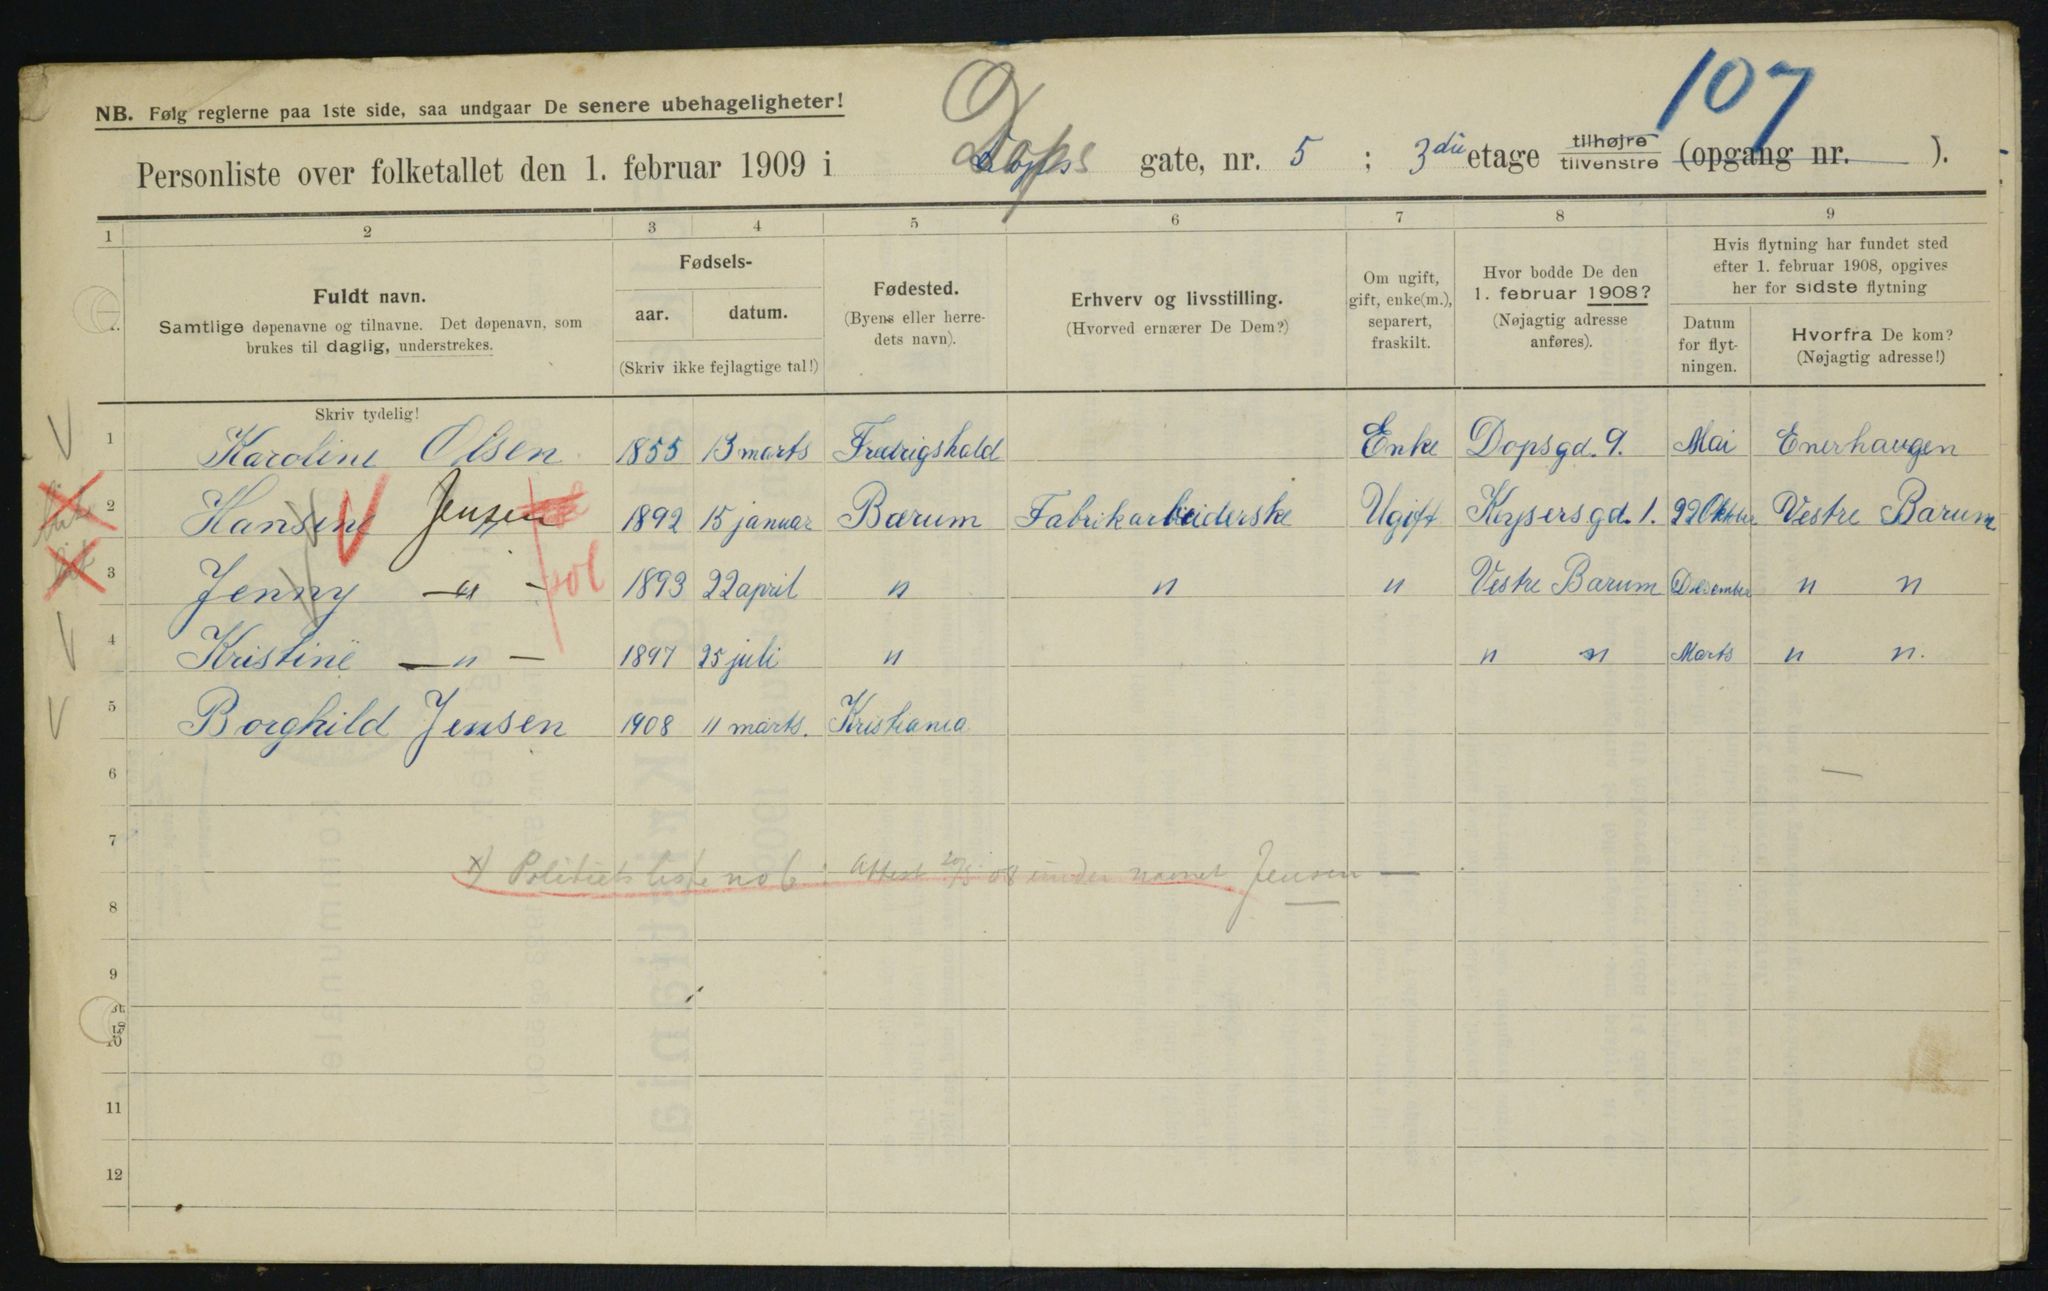 107
NB. Følg reglerne paa 1ste side, saa undgaar De senere ubehageligheter!
Personliste over folketallet den 1. februar 1909 i Dops gate, nr. 5 ; 3die etage tilhøjre tilvenstre (opgang nr. ).
1 2 3 4 5 6 7 8 9
Fuldt navn.
Samtlige døpenavne og tilnavne. Det døpenavn, som
brukes til daglig, understrekes.
Fødsels-
aar. datum.
(Skriv ikke fejlagtige tal!)
Fødested.
(Byens eller herre-
dets navn).
Erhverv og livsstilling.
(Hvorved ernærer De Dem?)
Om ugift,
gift, enke(m.),
separert,
fraskilt.
Hvor bodde De den
1. februar 1908?
(Nøjagtig adresse
anføres).
Hvis flytning har fundet sted
efter 1. februar 1908, opgives
her for sidste flytning
Datum
for flyt-
ningen.
Hvorfra De kom?
(Nøjagtig adresse!)
Skriv tydelig!
1 Karoline Olsen 1855 13 marts Fredrigshald Enke Dopsgd. 9. Mai Enerhaugen
2 Hansine Jensen 1892 15 januar Bærum Fabrikarbeiderske Ugift Keysersgd. 1. 22 Oktber Vestre Barum
3 Jenny —"— 1893 22 april " " " Vestre Barum Desember " "
4 Kristine —"— 1897 25 juli " " " Marts " ".
5 Borghild Jensen 1908 11 marts. Kristiania
6
7
x) Politiets liste no 6: Attest 20/5 08 under navnet Jensen —
8
9
10
11
12